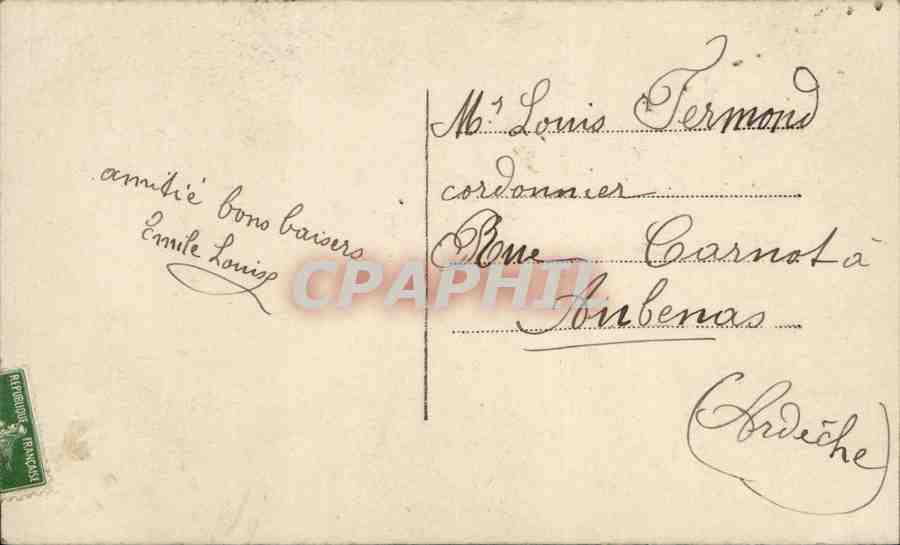 amitié bons baisers
Emile Louise
Mr Louis Fermond
cordonnier
Rue Carnot à
Aubenas
(Ardèche)
CPAPHIL
REPUBLIQUE FRANÇAISE